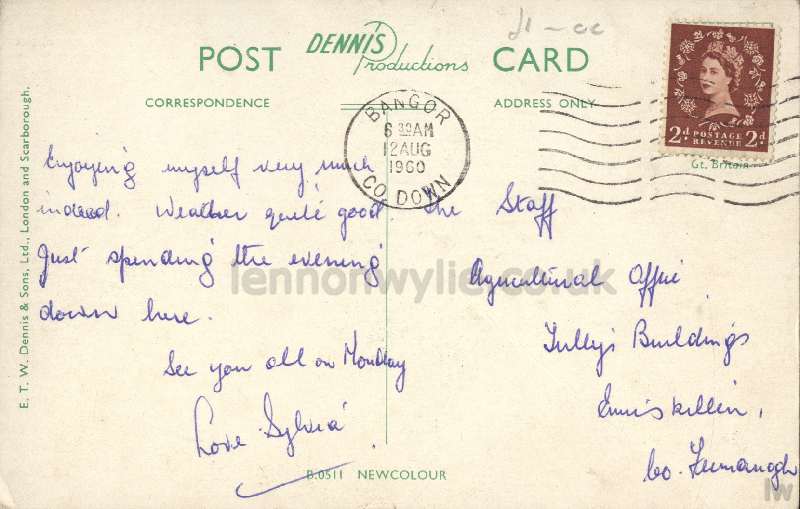 £1-00
POST DENNIS Productions CARD
CORRESPONDENCE
ADDRESS ONLY
BANGOR
6 30AM
12 AUG
1960
CO. DOWN
2d POSTAGE REVENUE 2d
Gt. Britain
Enjoying myself very much
indeed. Weather quite good.
Just spending the evening
down here.
See you all on Monday
Love Sylvia
The Staff
Agricultural Office
Tully's Buildings
Enniskillin,
Co. Fermanagh
E. T. W. Dennis & Sons, Ltd., London and Scarborough.
B.0511 NEWCOLOUR
lennonwylie.co.uk
lw